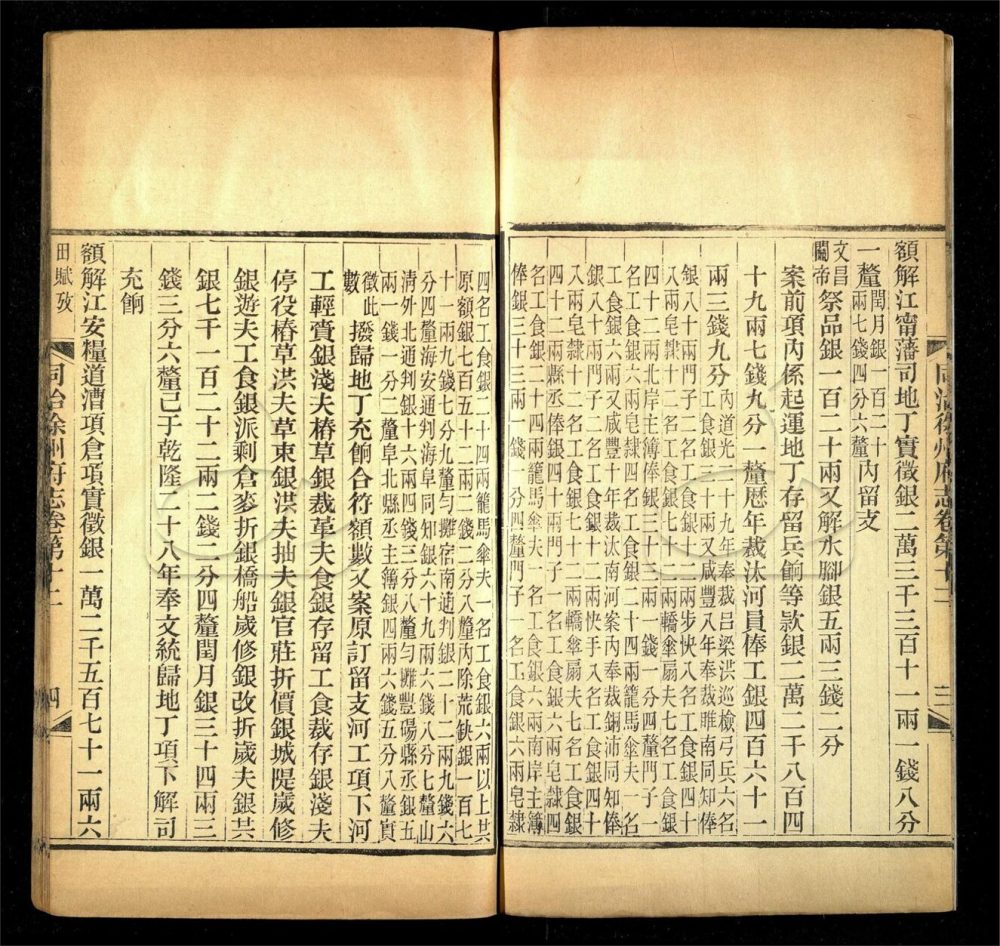 額解江甯藩司地丁實徵銀二萬三千三百十一兩一錢八分
一釐閏月銀一百二十兩七錢四分六釐內留支
文昌關帝祭品銀一百二十兩又解水腳銀五兩三錢二分
案前項內係起運地丁存留兵餉等款銀二萬二千八百四
十九兩七錢九分一釐歷年裁汰河員俸工銀四百六十一
兩三錢九分內道光二十九年奉裁呂梁洪巡檢弓兵六名
工食銀三十兩又咸豐八年奉裁睢南同知俸
銀八十兩門子二名工食銀十二兩步快八名工食銀四十
八兩皂隸十二名工食銀七十二兩轎傘扇夫七名工食銀
四十二兩北岸主簿俸銀三十三兩一錢一分四釐門子一
名工食銀六兩皂隸四名工食銀二十四兩籠馬傘夫一名
工食銀六兩又咸豐十年裁汰南河案內奉裁銅沛同知俸
銀八十兩門子二名工食銀十二兩快手八名工食銀四十
八兩皂隸十二名工食銀七十二兩轎傘扇夫七名工食銀
四十二兩縣丞俸銀四十兩門子一名工食銀六兩皂隸四
名工食銀二十四兩籠馬傘夫一名工食銀六兩南岸主簿
俸銀三十三兩一錢一分四釐門子一名工食銀六兩皂隸
同治徐州府志卷第十二 三
四名工食銀二十四兩籠馬傘夫一名工食銀六兩以上共
原額銀七百五十二兩二錢二分八釐內除荒缺銀一百七
十一兩九錢七分九釐勻攤宿南通判銀二十二兩九錢六
分四釐海安通判海阜同知銀六十九兩六錢八分七釐山
清外北通判銀十六兩四錢三分八釐勻攤豐碭縣丞銀五
兩一錢一分二釐阜北縣丞主簿銀四兩六錢五分八釐實
徵此數撥歸地丁充餉合符額數又案原訂留支河工項下河
工輕賫銀淺夫樁草銀裁革夫食銀存留工食裁存銀淺夫
停役樁草洪夫草束銀洪夫抽夫銀官莊折價銀城隄歲修
銀遊夫工食銀派剩倉麥折銀橋船歲修銀改折歲夫銀共
銀七千一百二十二兩二錢二分四釐閏月銀三十四兩三
錢三分六釐已于乾隆二十八年奉文統歸地丁項下解司
充餉
額解江安糧道漕項倉項實徵銀一萬二千五百七十一兩六
田賦攷
同治徐州府志卷第十二 四